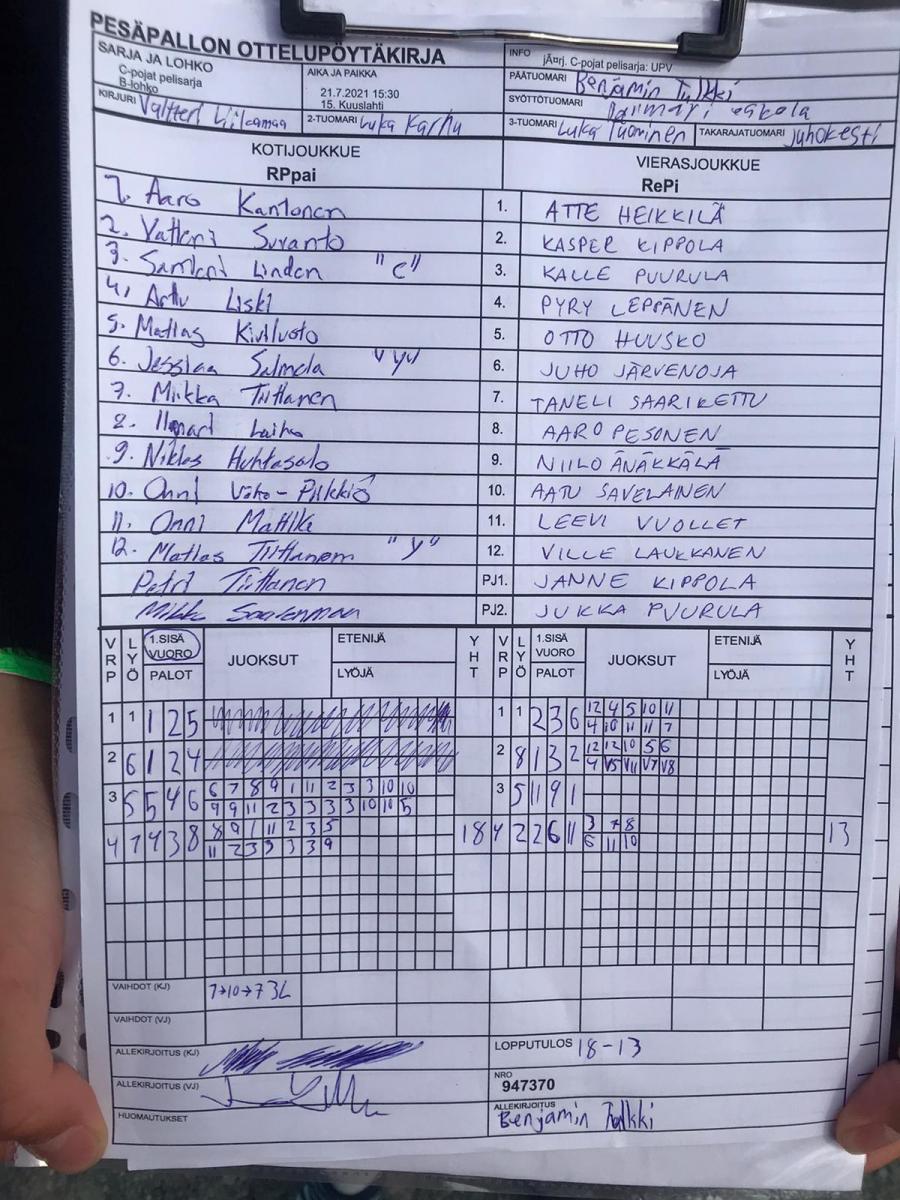 PESÄPALLON OTTELUPÖYTÄKIRJA
SARJA JA LOHKO
C-pojat pelisarja
B-lohko
AIKA JA PAIKKA
21.7.2021 15:30
15. Kuuslahti
INFO jÃ¤rj. C-pojat pelisarja: UPV
PÄÄTUOMARI Benjamin Tulkki
SYÖTTÖTUOMARI
KIRJURI Valtteri
2-TUOMARI Luka Karhu
3-TUOMARI Luka Tuominen
TAKARAJATUOMARI Juhokesti
KOTIJOUKKUE
RPpai
VIERASJOUKKUE
RePi
1. Aaro Kantonen
1. ATTE HEIKKILÄ
2. Valtteri Suvanto
2. KASPER KIPPOLA
3. Santeri Linden "C"
3. KALLE PUURULA
4. Arttu Liski
4. PYRY LEPPÄNEN
5. Matias Kiviluoto
5. OTTO HUUSKO
6. Salmela "Vy"
6. JUHO JÄRVENOJA
7. Miikka Tiittanen
7. TANELI SAARIKETTU
8. Ilmari Laiho
8. AARO PESONEN
9. Niklas Huhtasalo
9. NIILO ÄNÄKKÄLÄ
10. Onni Väha-Piikkiö
10. AATU SAVELAINEN
11. Onni Mattila
11. LEEVI VUOLLET
12. Matias Tiittanem "y"
12. VILLE LAUKKANEN
Petri Tiittanen
PJ1. JANNE KIPPOLA
PJ2. JUKKA PUURULA
VRP LYÖ 1.SISÄ VUORO PALOT JUOKSUT ETENIJÄ LYÖJÄ YHT
VRP LYÖ 1.SISÄ VUORO PALOT JUOKSUT ETENIJÄ LYÖJÄ YHT
1 1 1 2 5
1 1 2 3 6 12 4 5 10 11
4 10 11 11 7
2 6 1 2 4
2 8 1 3 2 12 12 10 5 6
4 V5 V11 V7 V8
3 5 5 4 6 6 7 8 9 1 11 2 3 3 10 10
9 9 11 2 3 3 3 3 10 10 5
3 5 11 9 1
4 7 9 3 8 8 9 1 11 2 3 5
11 2 3 3 3 3 9
18
4 2 2 6 11 3 7 8
6 11 10
13
VAIHDOT (KJ) 7→10→7 3L
VAIHDOT (VJ)
ALLEKIRJOITUS (KJ)
LOPPUTULOS 18-13
ALLEKIRJOITUS (VJ)
NRO
947370
HUOMAUTUKSET
ALLEKIRJOITUS
Benjamin Tulkki